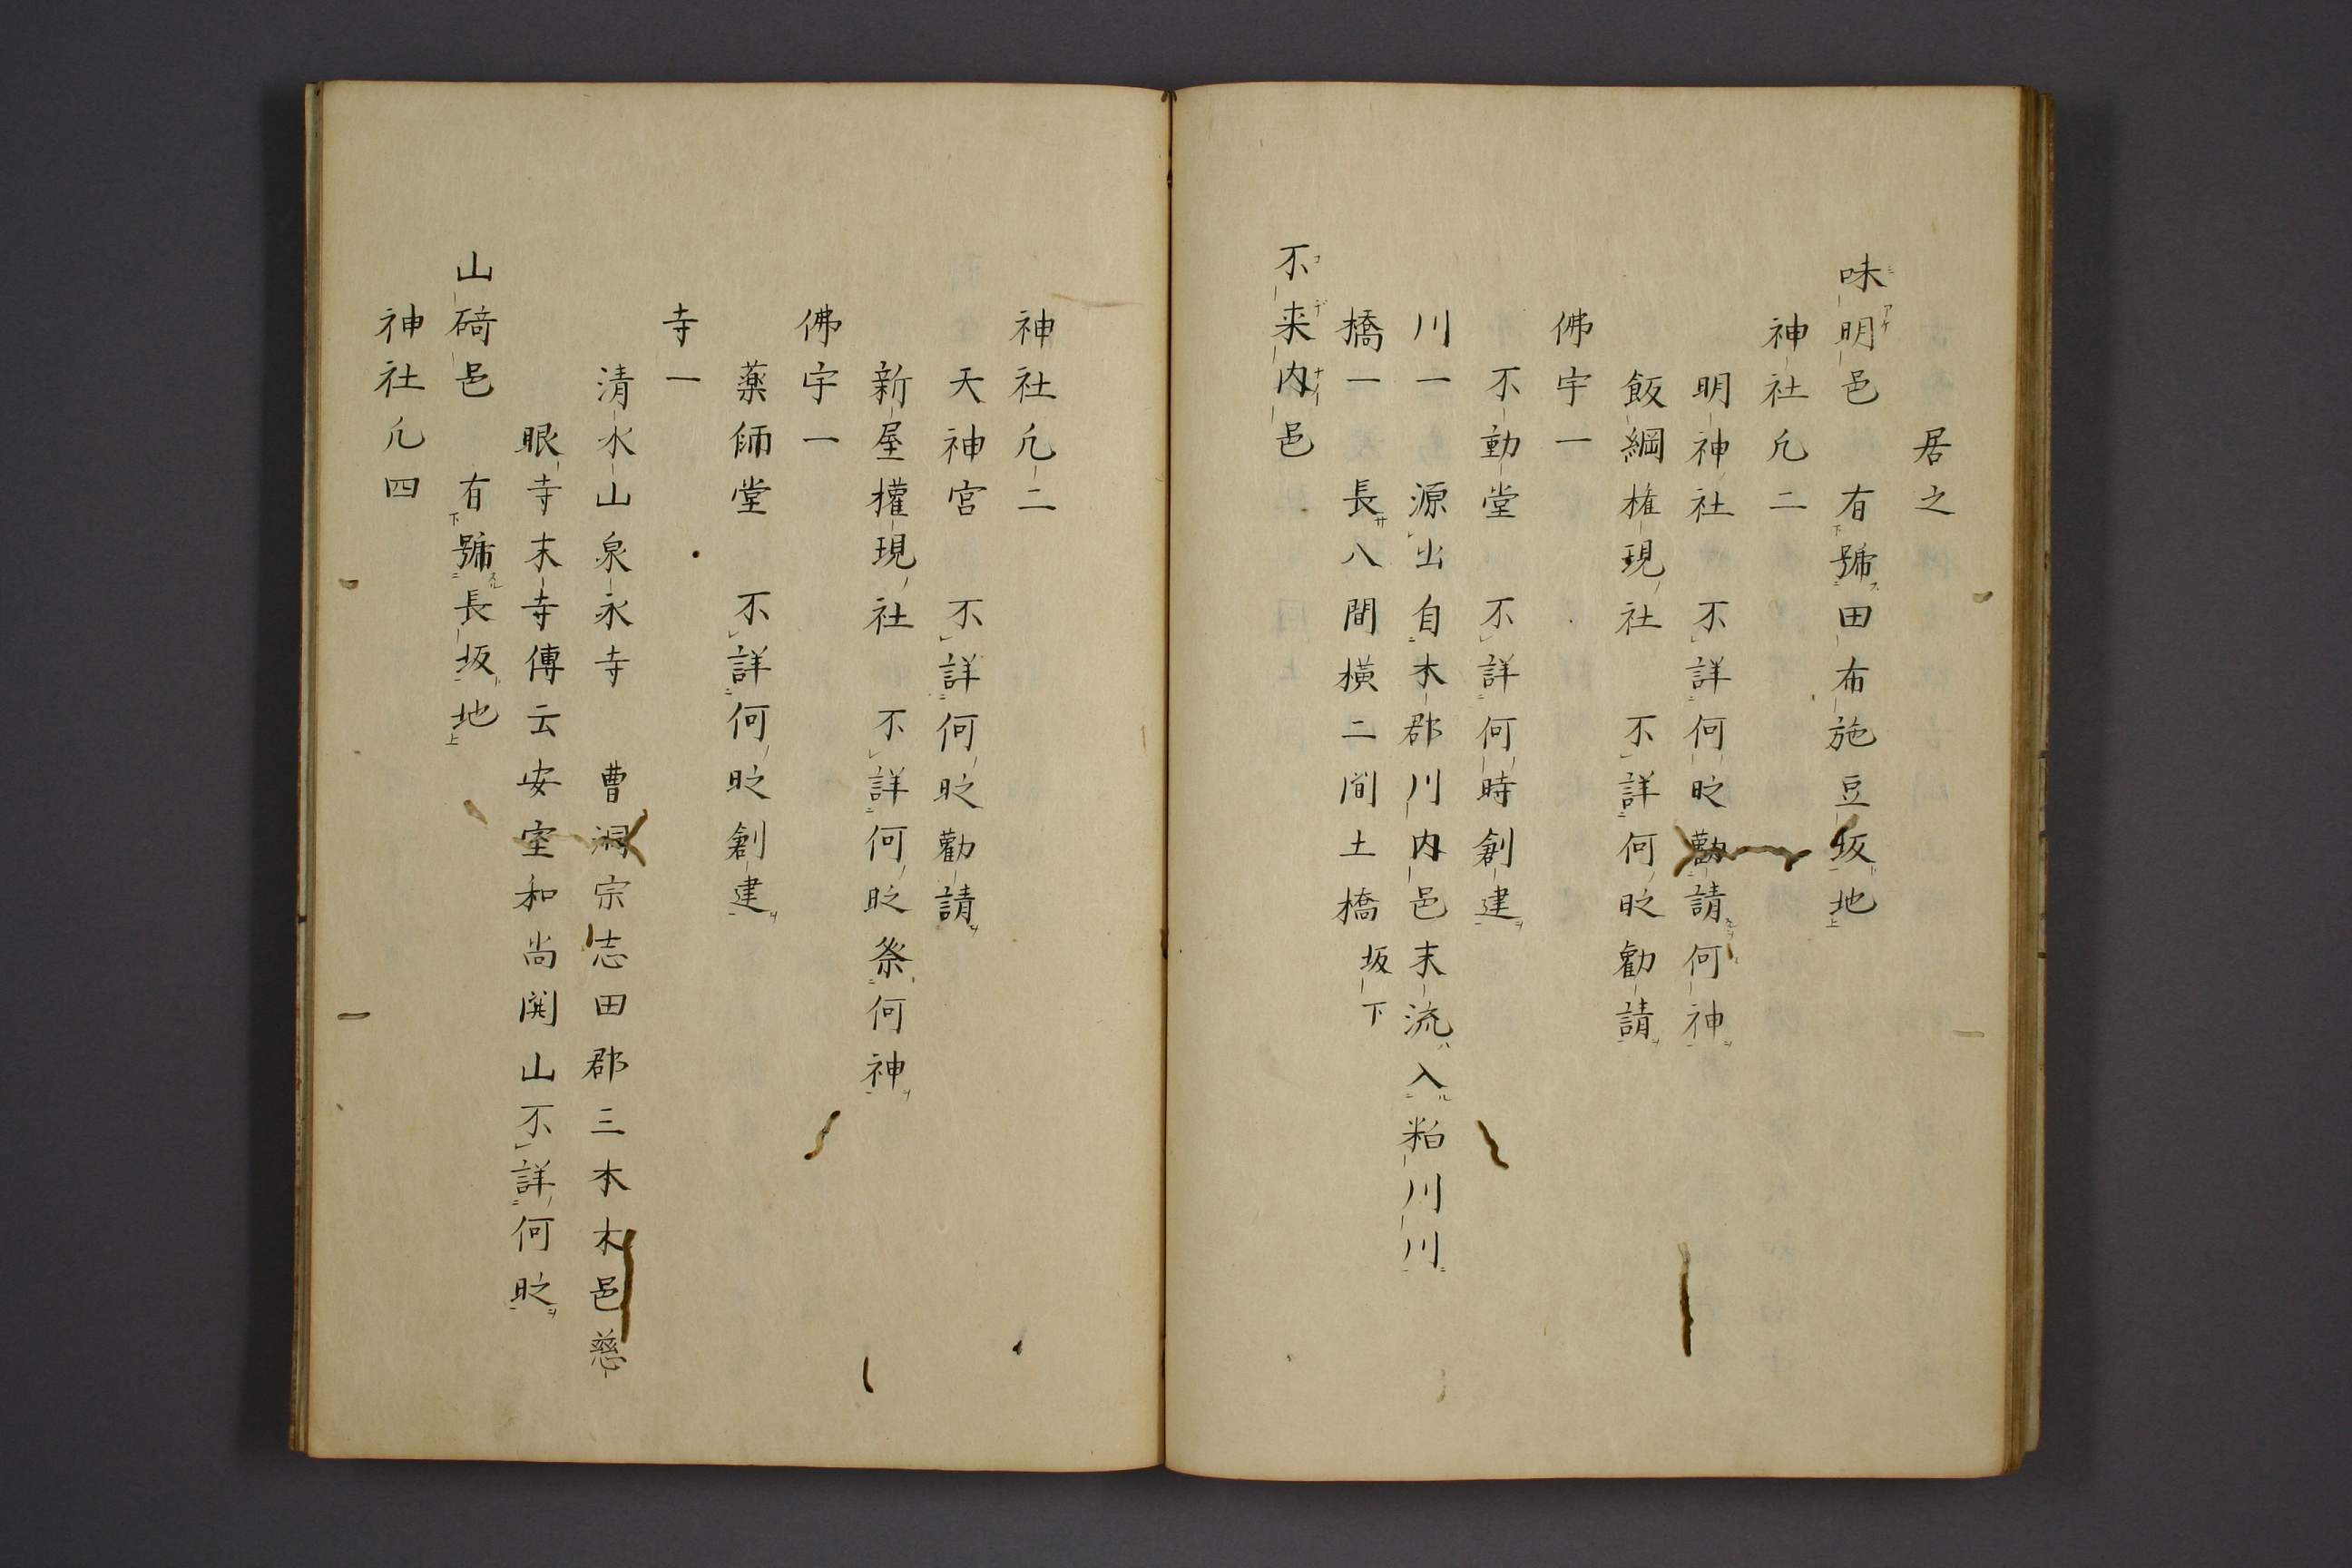 居之
味明邑 有號田布施豆坂地
神社凡二
明神社 不詳何旹勸請何神
飯綱権現社 不詳何旹勧請
佛宇一
不動堂 不詳何時創建
川一 源出自木郡川内邑末流入粕川川
橋一 長八間横二間土橋 坂下
不来内邑
神社凡二
天神宮 不詳何旹勸請
新屋權現社 不詳何旹祭何神
佛宇一
藥師堂 不詳何旹創建
寺一
清水山泉永寺 曹洞宗志田郡三本木邑慈
眼寺末寺傳云安室和尚開山不詳何旹
山碕邑 有號長坂地
神社凡四